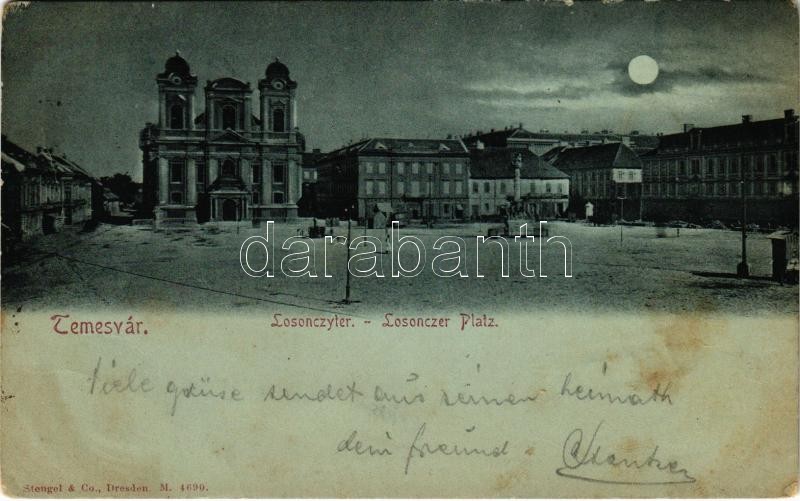 darabanth
Temesvár.
Losonczyter. - Losonczer Platz.
Viele grüse sendet aus seinen heimath
dein freund
Stengel & Co., Dresden. M. 4690.